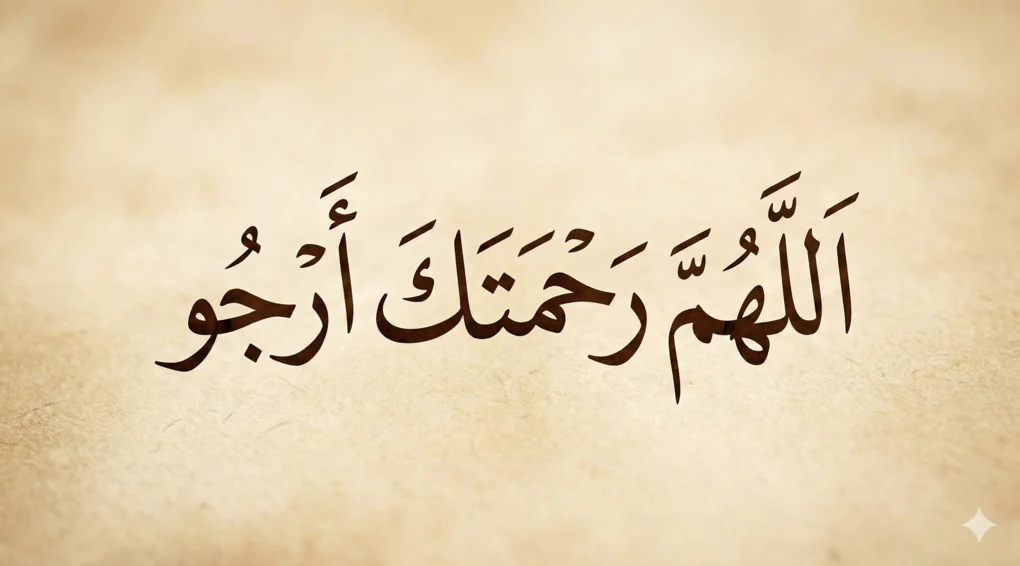 اَللَّهُمَّ رَحْمَتَكَ أَرْجُو